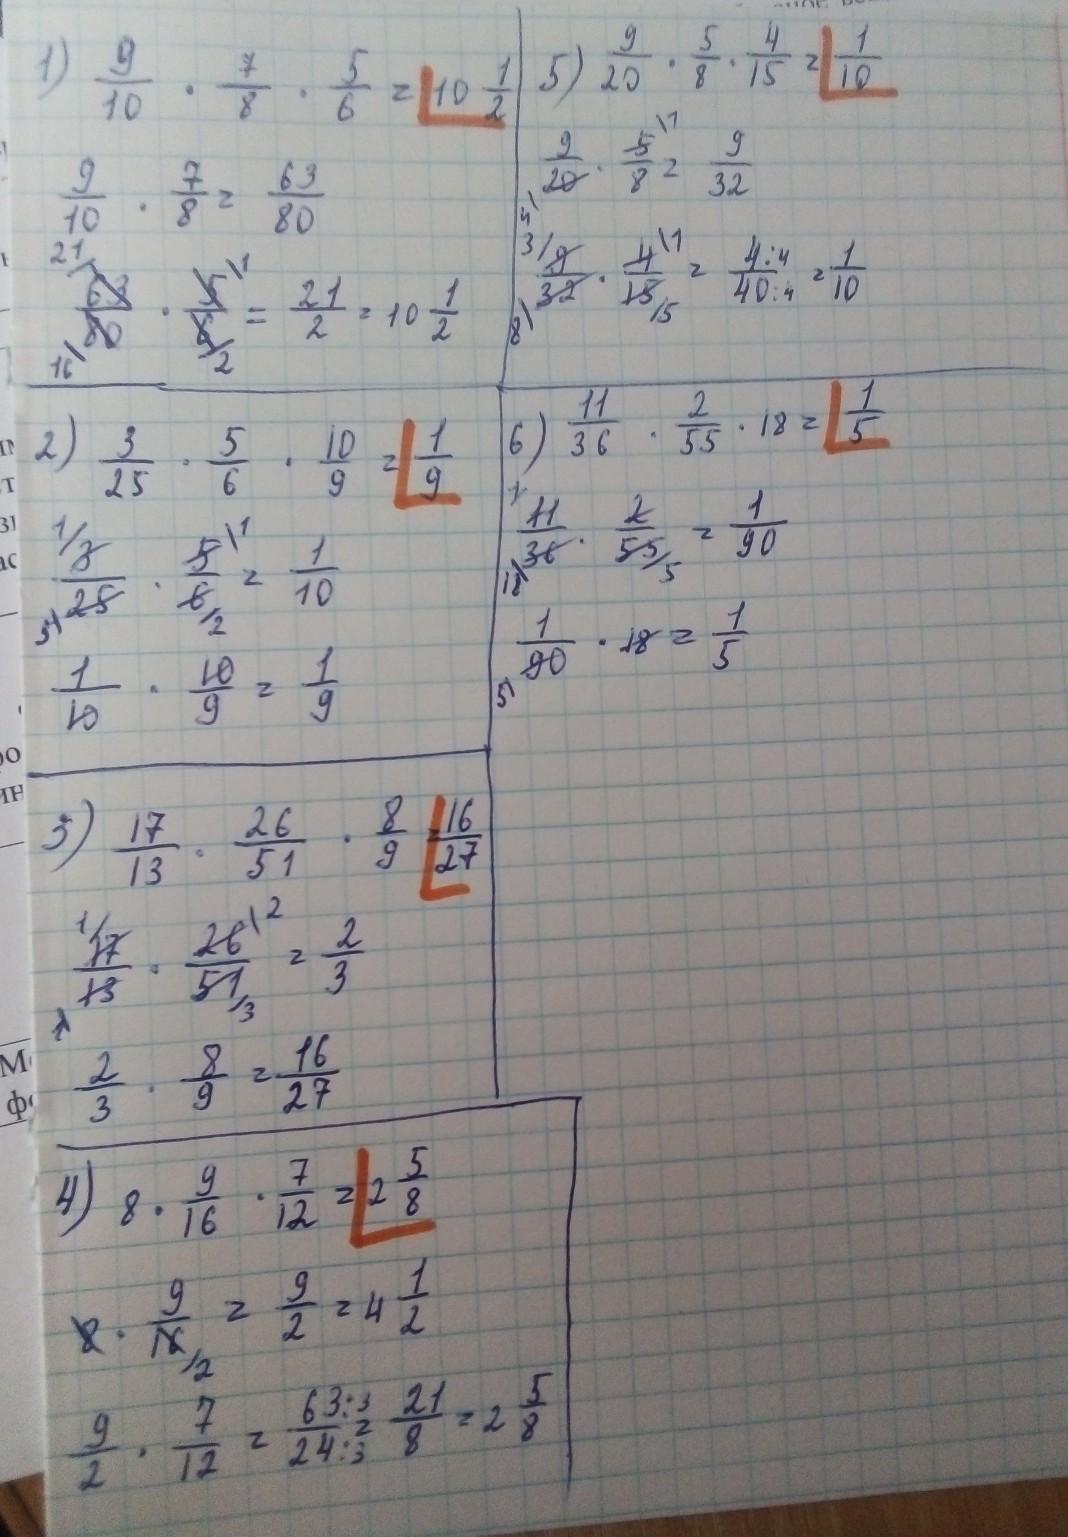 1) 9/10 · 7/8 · 5/6 = 10 1/2
9/10 · 7/8 = 63/80
21/ 63/80 16\ · 5\1 / 6/2 = 21/2 = 10 1/2
2) 3/25 · 5/6 · 10/9 = 1/9
1/ 3/25 5\ · 5\1 / 6/2 = 1/10
1/10 · 10/9 = 1/9
3) 17/13 · 26/51 · 8/9 = 16/27
1/ 17/13 1\ · 26\2 / 51/3 = 2/3
2/3 · 8/9 = 16/27
4) 8 · 9/16 · 7/12 = 2 5/8
8 · 9/16 /2 = 9/2 = 4 1/2
9/2 · 7/12 = 63:3/24:3 = 21/8 = 2 5/8
5) 9/20 · 5/8 · 4/15 = 1/10
9/20 4\ · 5\1 / 8 = 9/32
3/ 9/32 8\ · 4\1 / 15/5 = 4:4/40:4 = 1/10
6) 11/36 · 2/55 · 18 = 1/5
1/ 11/36 18\ · 2/55 /5 = 1/90
1/90 5\ · 18 = 1/5